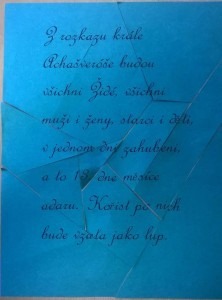 Z rozkazu krále
Achašveróše budou
všichni Židé, všichni
muži i ženy, starci i děti,
v jednom dni zahubeni,
a to 13. dne měsíce
adaru. Kořist po nich
bude vzata jako lup.